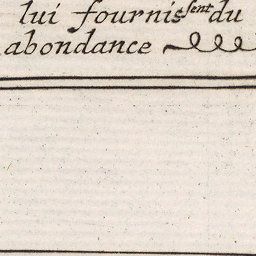 lui fournissent du
abondance